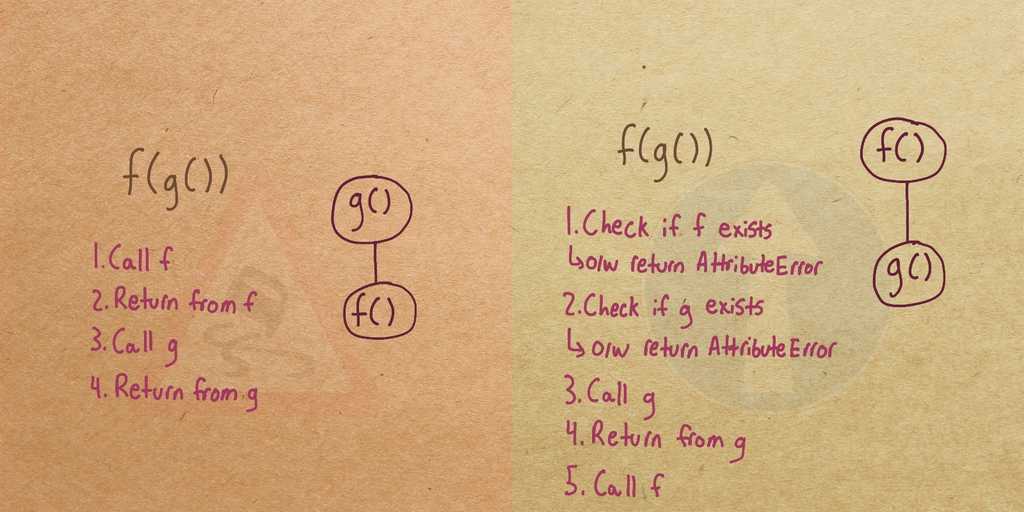 f(g())
g()
f()
1. Call f
2. Return from f
3. Call g
4. Return from g
f(g())
f()
g()
1. Check if f exists
↳ o/w return AttributeError
2. Check if g exists
↳ o/w return AttributeError
3. Call g
4. Return from g
5. Call f